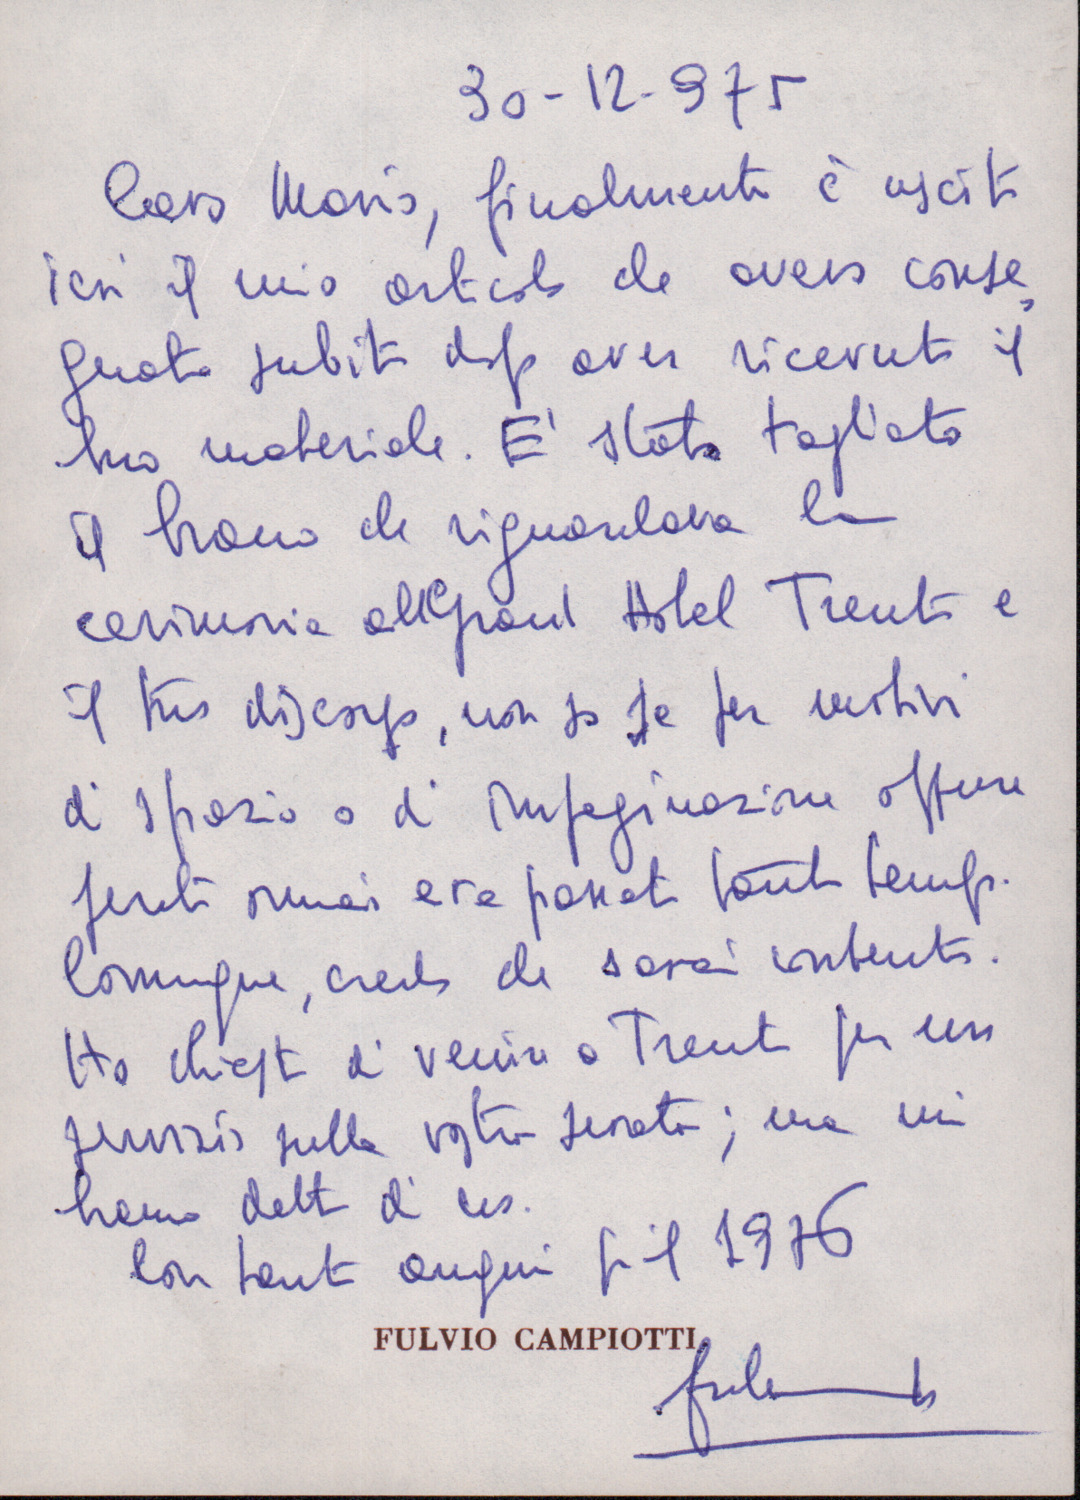 30-12-975
Caro Maris, finalmente è uscito
ieri il mio articolo che avevo conse
gnato subito dopo aver ricevuto il
tuo materiale. E' stato tagliato
il brano che riguardava la
cerimonia al Grand Hotel Trento e
il tuo discorso, non so se per motivi
di spazio o di impaginazione oppure
perché ormai era passato tanto tempo.
Comunque, credo che sarai contento.
Ho chiesto di venire a Trento per un
servizio sulla vostra serata; ma mi
hanno detto di no.
Con tanti auguri per il 1976
FULVIO CAMPIOTTI
Fulvio